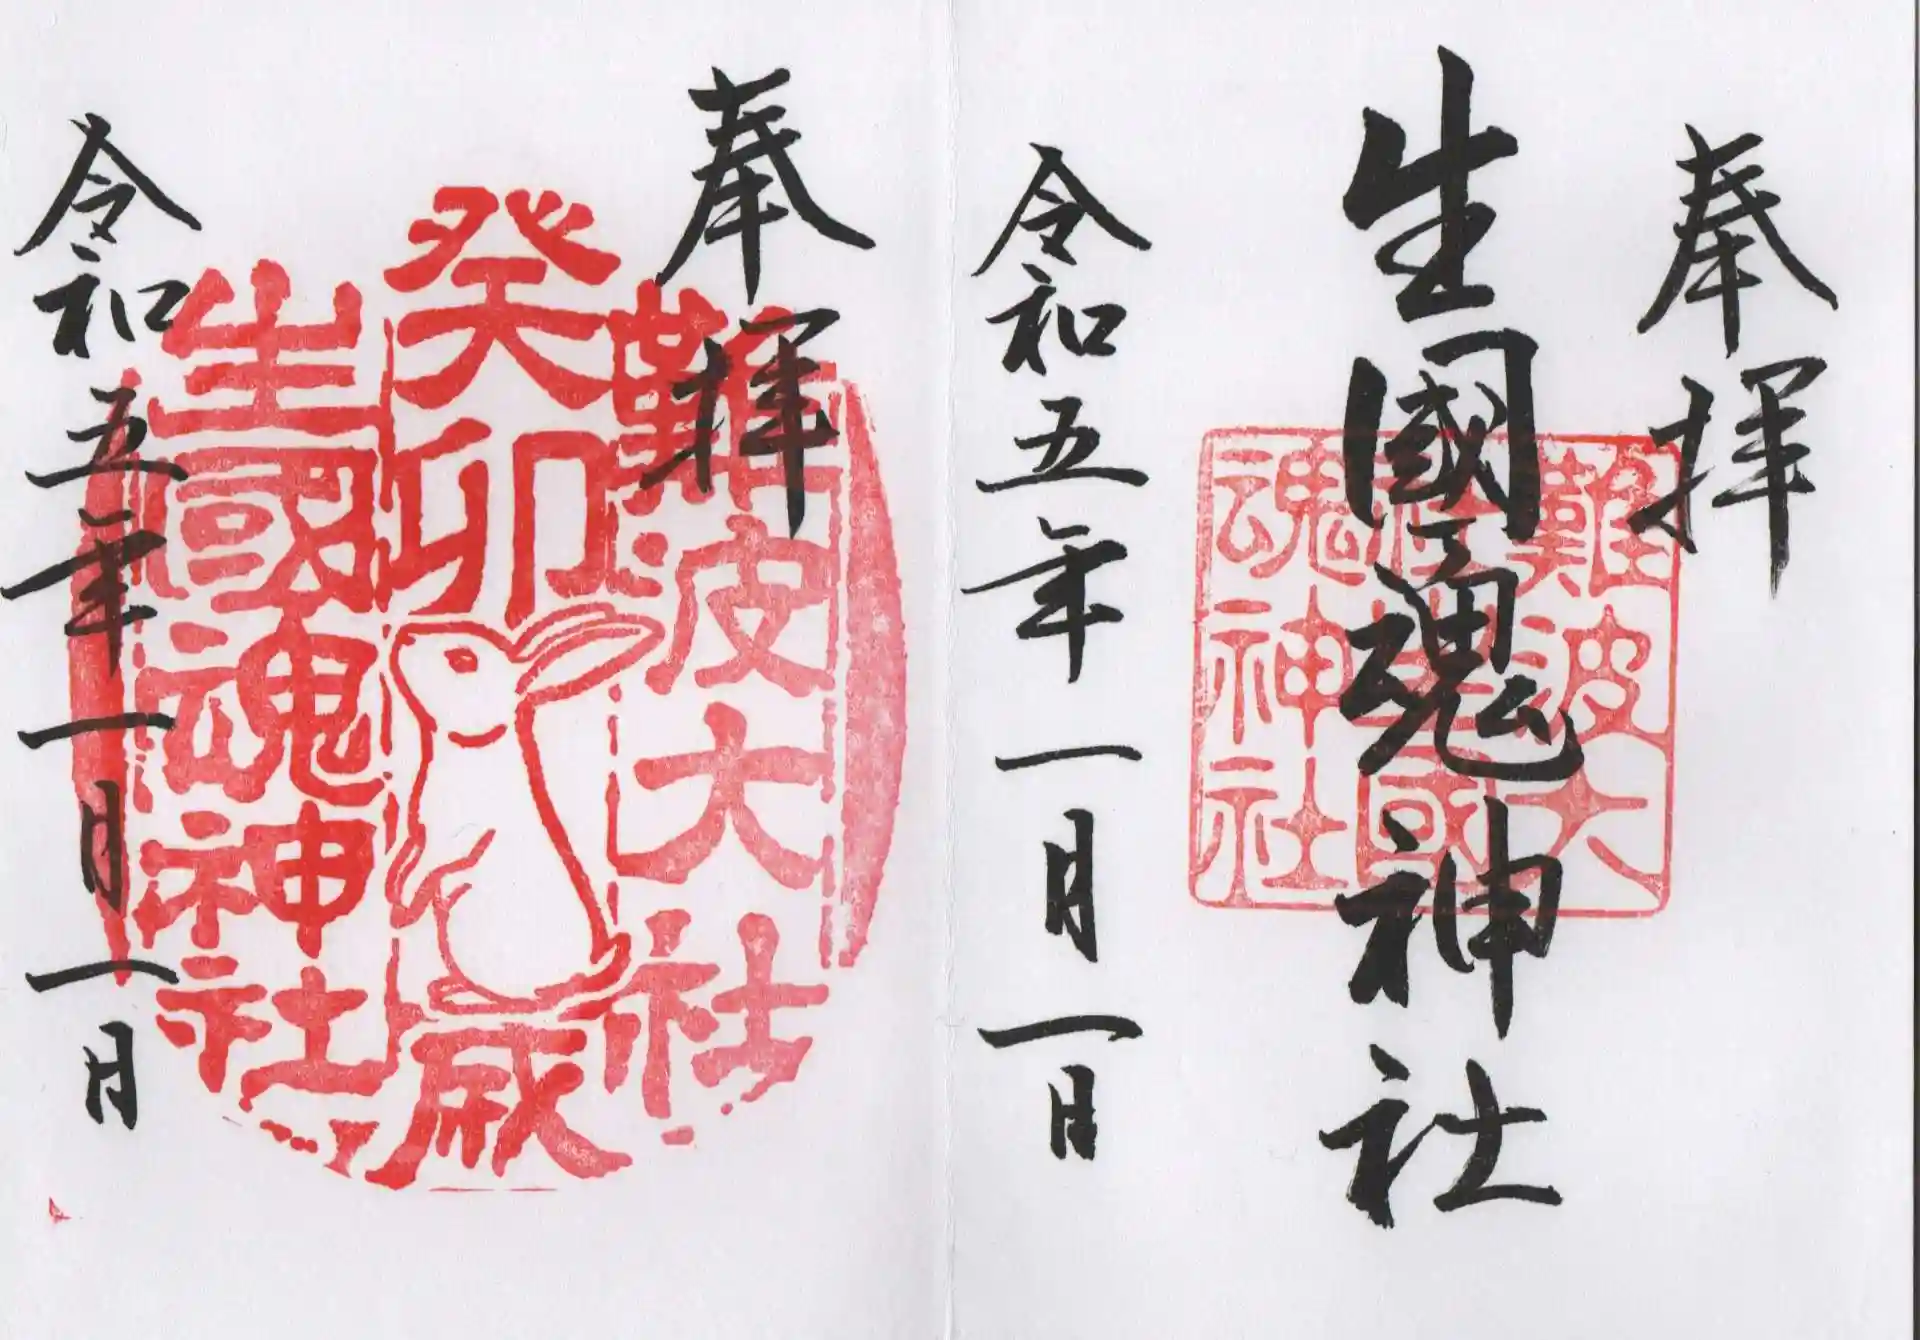 奉拝
生國魂神社
難波大
社生國
魂神社
令和五年一月一日
奉拝
難波大社
癸卯歳
生國魂神社
令和五年一月一日